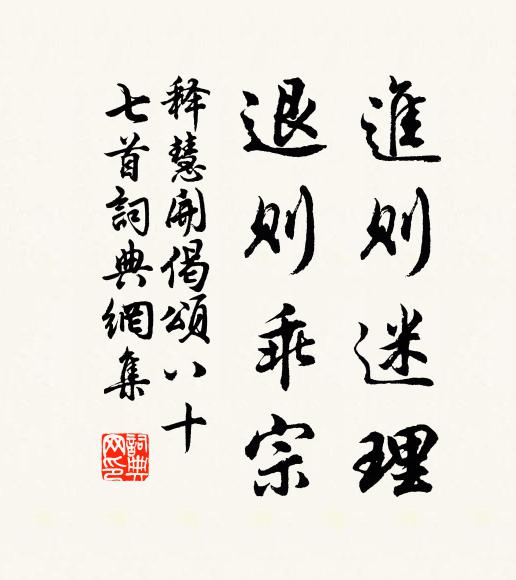 進則迷理
退則乖宗
释慧開偈頌八十
七首詞典網集
詞典網印